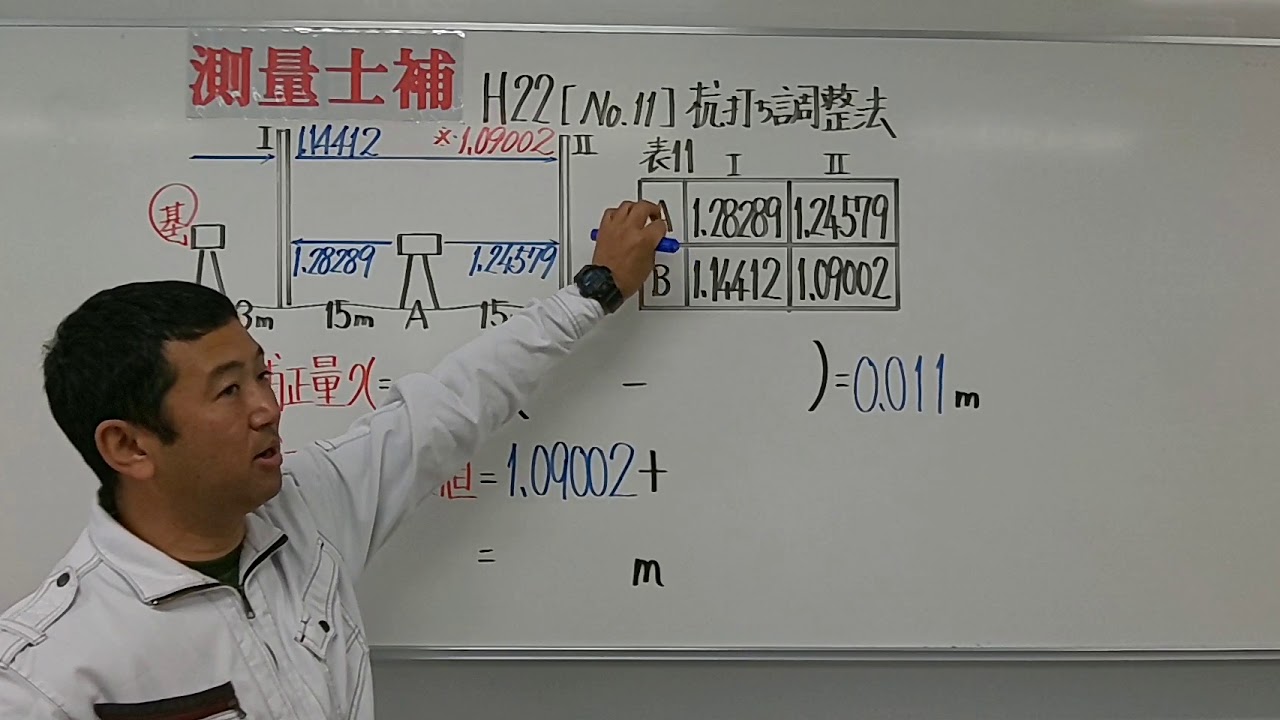 測量士補 H22[No.11]杭打ち調整法
I 1.14412 ※1.09002 II
表11 I II
A 1.28289 1.24579
B 1.14412 1.09002
基
1.28289 1.24579
3m 15m A 15
補正量x= - )=0.011m
値=1.09002+
= m